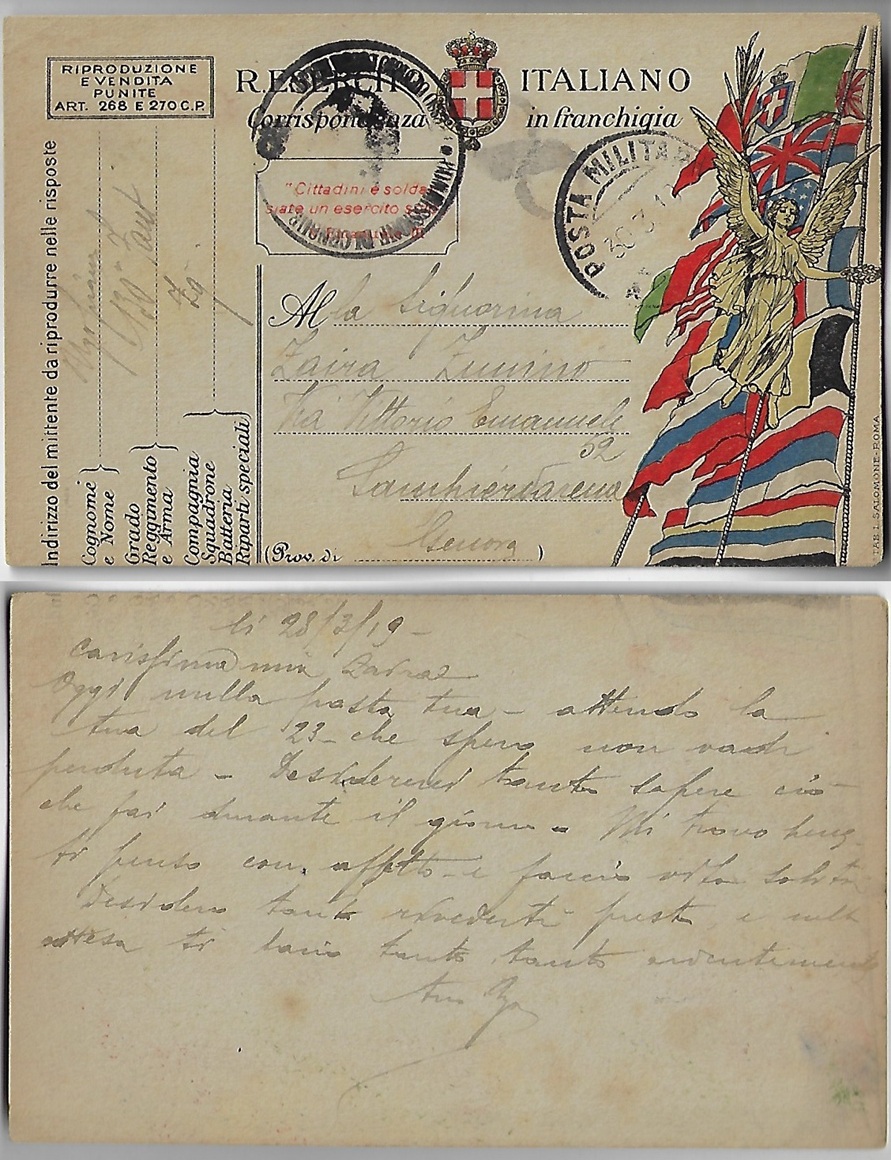 RIPRODUZIONE
E VENDITA
PUNITE
ART. 268 E 270 C.P.
R. ESERCITO ITALIANO
Corrispondenza in franchigia
"Cittadini e solda
siate un esercito so
POSTA MILITAR
30.3.1
Indirizzo del mittente da riprodurre nelle risposte
Cognome
e Nome
Grado
Reggimento
e Arma
130° Fant
Compagnia
Squadrone
Batteria
Riparti speciali
Alla Signorina
Zaira Zunino
Via Vittorio Emanuele
52
Sanpierdarena
(Prov. di Genova)
TAB. L. SALOMONE-ROMA
li 28/3/19 -
Carissima mia Zaira
Oggi nulla posta tua - attendo la
tua del 23 - che spero non vadi
perduta - Desidererei tanto sapere ciò
che fai durante il giorno - Mi trovo bene
ti penso con affetto e faccio vita solita
Desidero tanto rivederti presto e nell
attesa ti bacio tanto tanto ardentemente
tuo